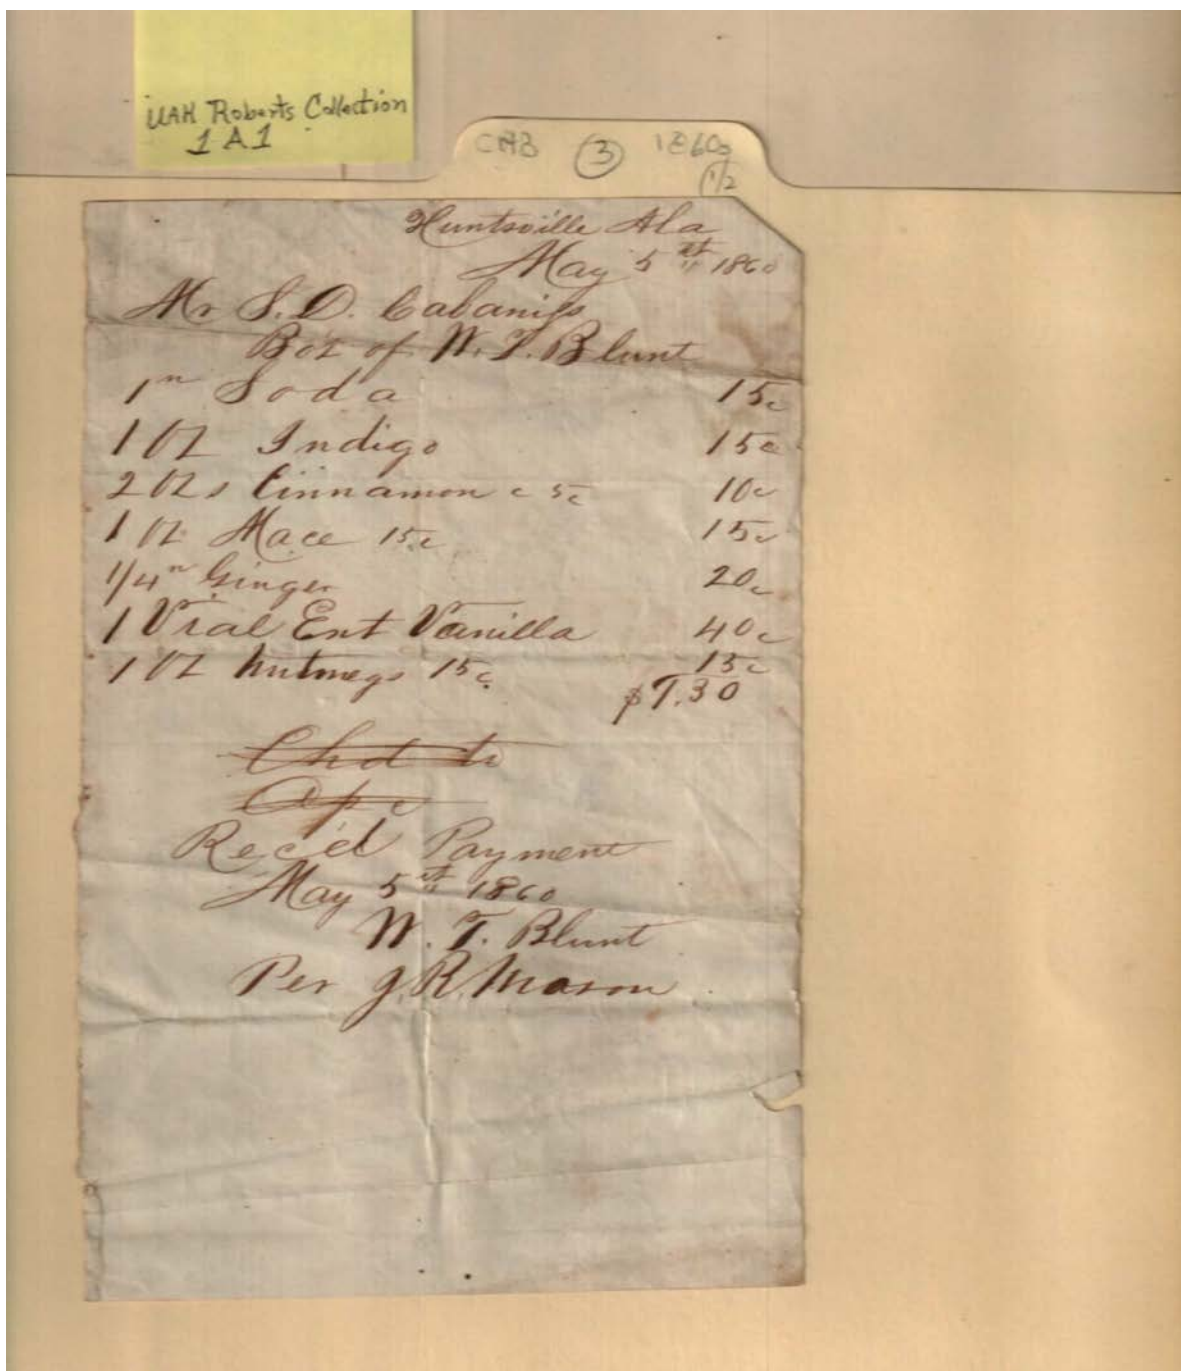 UAH Roberts Collection
1 A 1
CAB ③ 1860s
1/2
Huntsville Ala
May 5th 1860
Mr S. D. Cabaniss
Bot of W. T. Blunt
1 Soda 15c
1 oz Indigo 15c
2 ozs Cinnamon c 5c 10c
1 oz Mace 15c 15c
1/4 Ginger 20c
1 Vial Ext Vanilla 40c
1 oz Nutmegs 15c 15c
$1.30
Chd to
Rec'd Payment
May 5th 1860
W. T. Blunt
Per J. R. Mason